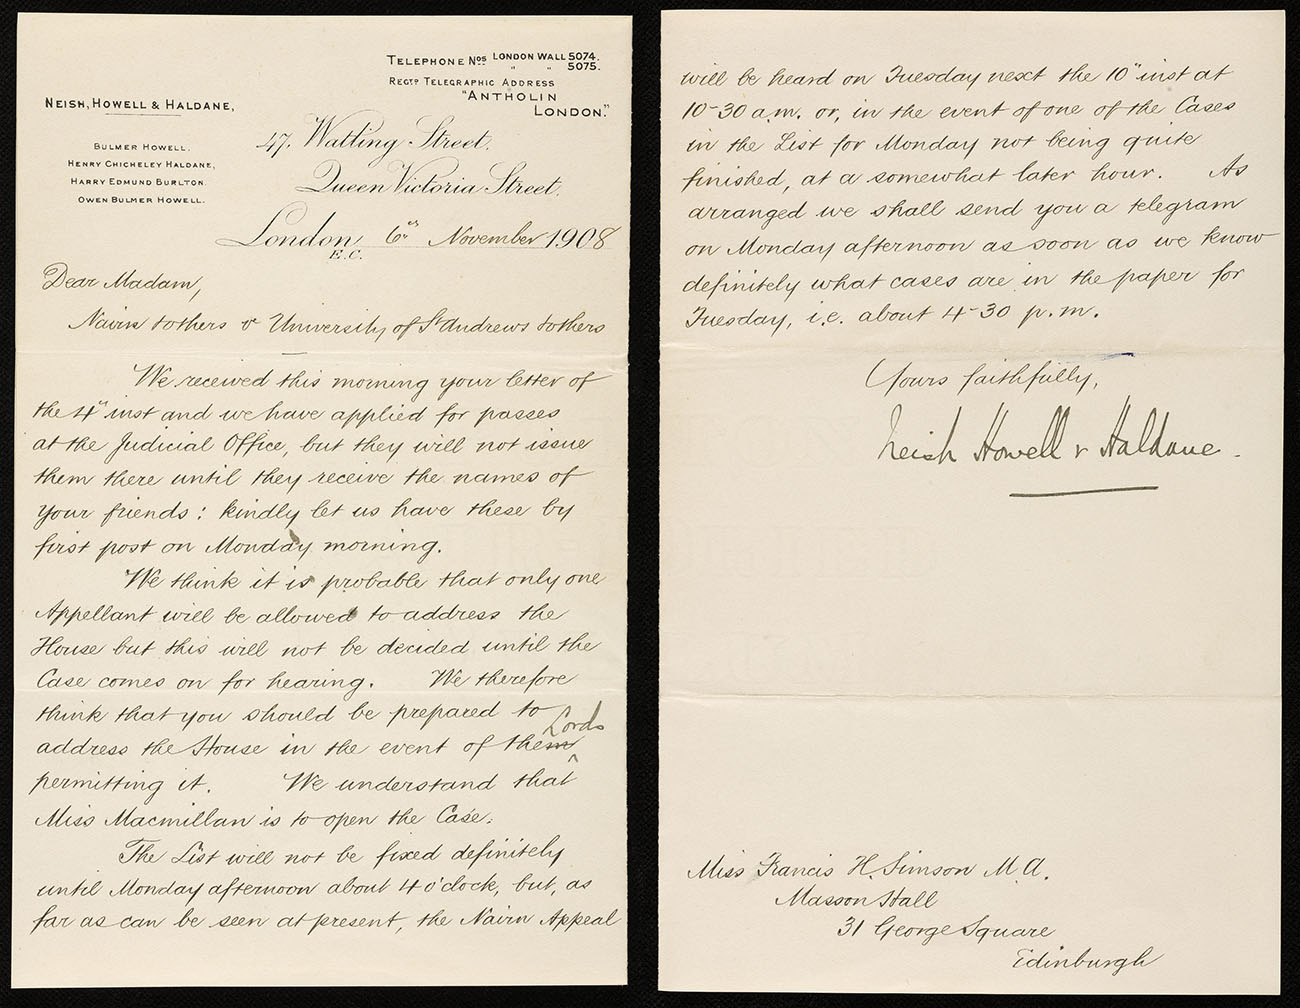 TELEPHONE Nos LONDON WALL 5074.
" " 5075.
REGTD TELEGRAPHIC ADDRESS
"ANTHOLIN
LONDON."
NEISH, HOWELL & HALDANE,
BULMER HOWELL.
HENRY CHICHELEY HALDANE,
HARRY EDMUND BURLTON.
OWEN BULMER HOWELL.
47, Watling Street,
Queen Victoria Street,
London, 6th November 1908
E.C.
Dear Madam,
Nairn & others v University of St Andrews & others
We received this morning your letter of
the 4th inst and we have applied for passes
at the Judicial Office, but they will not issue
them there until they receive the names of
your friends: kindly let us have these by
first post on Monday morning.
We think it is probable that only one
Appellant will be allowed to address the
House but this will not be decided until the
Case comes on for hearing. We therefore
think that you should be prepared to
address the House in the event of them Lords
permitting it. We understand that
Miss Macmillan is to open the Case.
The List will not be fixed definitely
until Monday afternoon about 4 o'clock, but, as
far as can be seen at present, the Nairn Appeal
will be heard on Tuesday next the 10" inst at
10-30 a.m. or, in the event of one of the Cases
in the List for Monday not being quite
finished, at a somewhat later hour. As
arranged we shall send you a telegram
on Monday afternoon as soon as we know
definitely what cases are in the paper for
Tuesday, i.e. about 4-30 p.m.
Yours faithfully,
Neish Howell & Haldane.
Miss Francis H. Simson M.A.
Masson Hall
31 George Square
Edinburgh